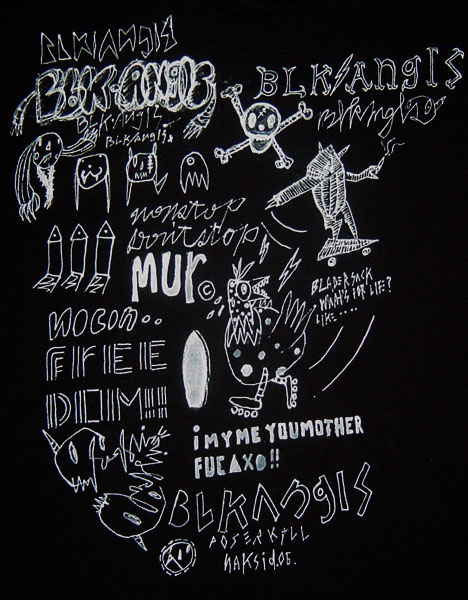 BLK/ANGIS
BLK-ANGIS
BLK/ANGIS
BLK-ANGIS
BLK/ANGIS
nonstop
Dontstop
MUR©
BLADER SACK
WHAT'S FOR LIFE?
LIKE....
NOCON..
FREE
DOM!!!
i MY ME YOUMOTHER
FUCAXO!!
BLKANGIS
POSERKILL
NAKSID.05.